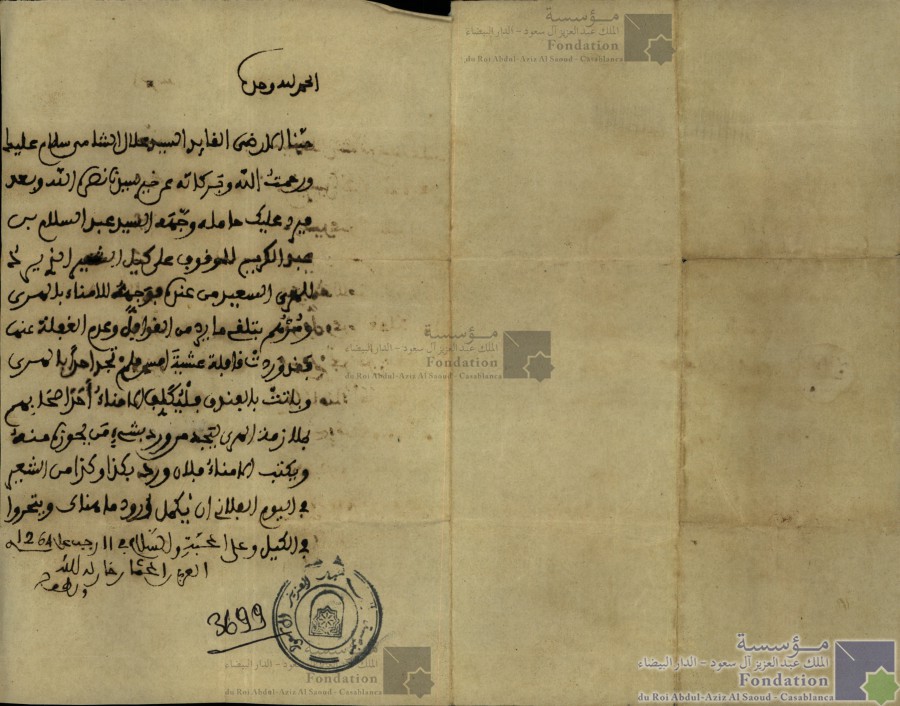 الحمد لله وحده
محبنا الارضى القايد السيد علال الشامي سلام عليك
ورحمت الله وبركاته عن خير سيدنا نصره الله وبعد
فيرد عليك حامله وجهه السيد عبد السلام بن
عبد الكريم للوقوف على كيل الشعير الذي يرد
للمرسى السعيد من عندكم فوجهه للامناء بالمرسى
يتلف ما يرد من القوافل وعدم الغفلة عنها
فقد وردت قافلة عشية امس فلم تجد احدا بالمرسى
وباتت بالفندق فليكلف الامناء احدا من اصحابهم
بملازمة المرسى ليجد من ورد بشيء من يحوزه منه
ويكتب الامناء فلان ورد بكذا وكذا من الشعير
في اليوم الفلاني الى ان يكمل ورود ما هناك ويتحروا
في الكيل وعلى المحبة والسلام في 11 رجب عام 1264
العربي المختار خار الله له
3699
مؤسسة
الملك عبد العزيز آل سعود - الدار البيضاء
Fondation
du Roi Abdul-Aziz Al Saoud - Casablanca
مؤسسة
الملك عبد العزيز آل سعود - الدار البيضاء
Fondation
du Roi Abdul-Aziz Al Saoud - Casablanca
مؤسسة
الملك عبد العزيز آل سعود - الدار البيضاء
Fondation
du Roi Abdul-Aziz Al Saoud - Casablanca
مؤسسة
الملك عبد العزيز آل سعود - الدار البيضاء
Fondation
du Roi Abdul-Aziz Al Saoud - Casablanca